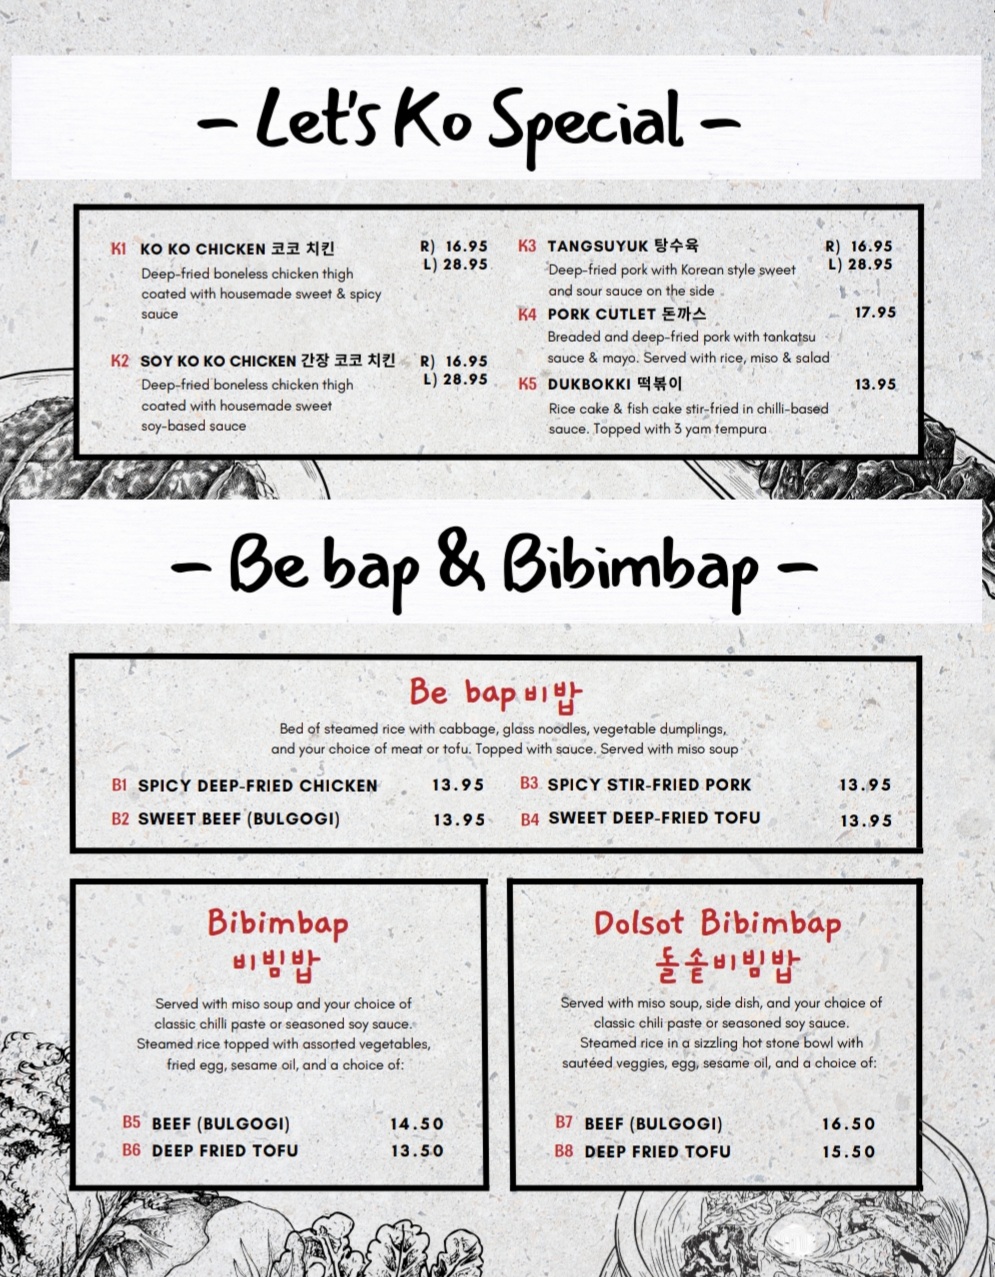 – Let's Ko Special –
K1 KO KO CHICKEN 코코 치킨 R) 16.95
L) 28.95
Deep-fried boneless chicken thigh
coated with housemade sweet & spicy
sauce
K2 SOY KO KO CHICKEN 간장 코코 치킨 R) 16.95
L) 28.95
Deep-fried boneless chicken thigh
coated with housemade sweet
soy-based sauce
K3 TANGSUYUK 탕수육 R) 16.95
L) 28.95
Deep-fried pork with Korean style sweet
and sour sauce on the side
K4 PORK CUTLET 돈까스 17.95
Breaded and deep-fried pork with tonkatsu
sauce & mayo. Served with rice, miso & salad
K5 DUKBOKKI 떡볶이 13.95
Rice cake & fish cake stir-fried in chilli-based
sauce. Topped with 3 yam tempura
– Be bap & Bibimbap –
Be bap 비밥
Bed of steamed rice with cabbage, glass noodles, vegetable dumplings,
and your choice of meat or tofu. Topped with sauce. Served with miso soup
B1 SPICY DEEP-FRIED CHICKEN 13.95
B2 SWEET BEEF (BULGOGI) 13.95
B3 SPICY STIR-FRIED PORK 13.95
B4 SWEET DEEP-FRIED TOFU 13.95
Bibimbap
비빔밥
Served with miso soup and your choice of
classic chilli paste or seasoned soy sauce.
Steamed rice topped with assorted vegetables,
fried egg, sesame oil, and a choice of:
B5 BEEF (BULGOGI) 14.50
B6 DEEP FRIED TOFU 13.50
Dolsot Bibimbap
돌솥비빔밥
Served with miso soup, side dish, and your choice of
classic chili paste or seasoned soy sauce.
Steamed rice in a sizzling hot stone bowl with
sautéed veggies, egg, sesame oil, and a choice of:
B7 BEEF (BULGOGI) 16.50
B8 DEEP FRIED TOFU 15.50